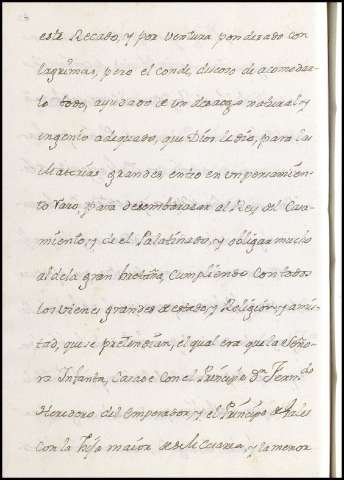 este Recado, y por ventura ponderado con
lagrimas, pero el conde, discoso de acomodar
lo todo, ayudado de un desaogo natural y
ingenio adequado, que Dios le dio, para las
Materias grandes entro en un pensamien
to raro, para desembarasar al Rey del Casa
miento, y de el Palatinado, y obligar mucho
al de la gran bretaña, Cumpliendo con todos
los vienes grandes de estado, y Religion, y amis
tad, que se pretendian, el qual era que la Señó
ra Infanta, Casase con el Principe Dn Ferndo
Heredero del Emperador, y el Principe de Gales
con la hija maior de Su M Cesarea, y la menor